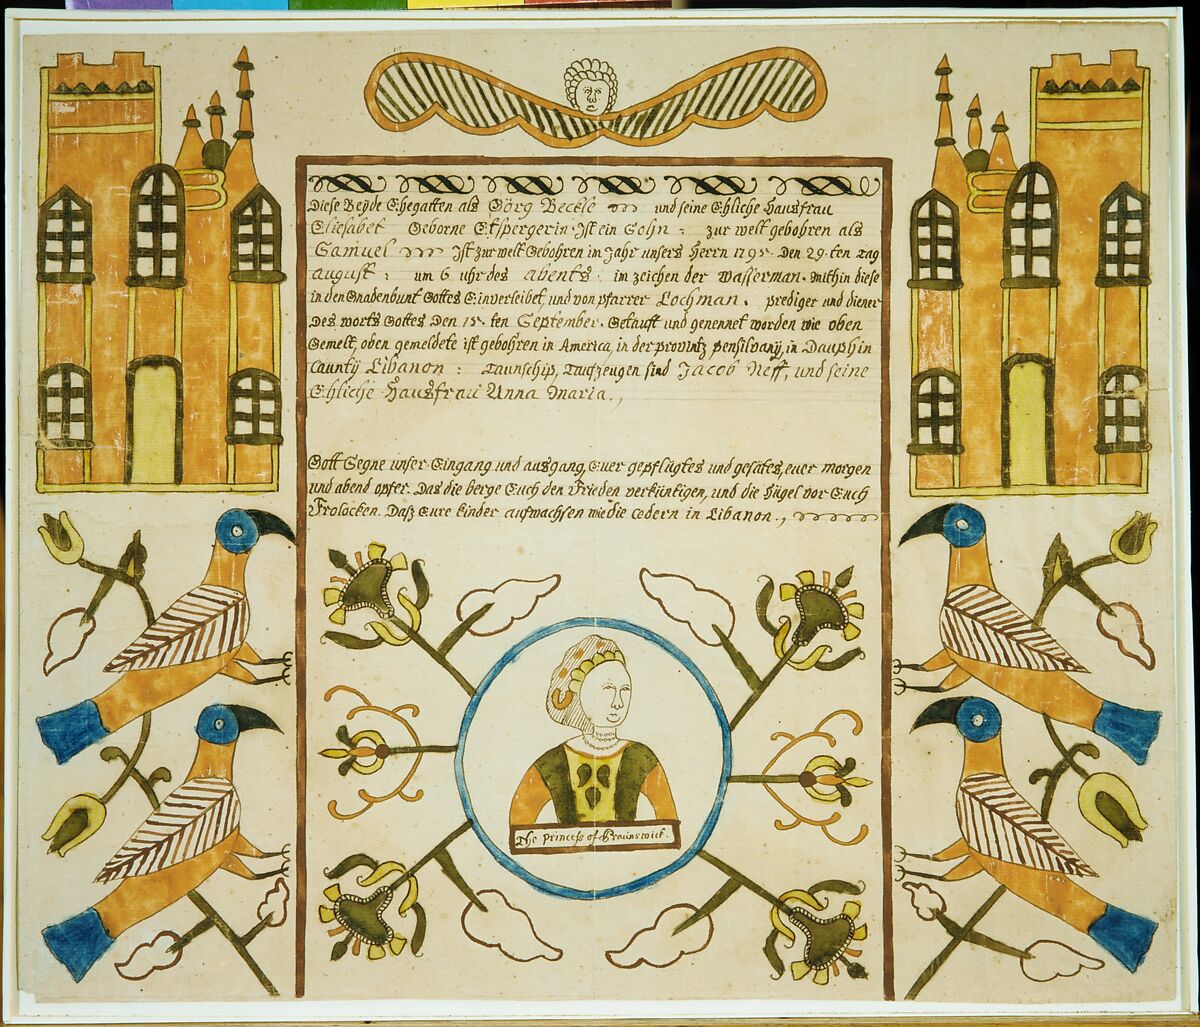 Diese Beyde Ehegatten als Görg Beckle und seine Ehliche Hausfrau
Eliesabet Geborne Etspergerin. Ist ein Sohn : zur welt gebohren als
Samuel Ist zur welt Gebohren im Jahr unsers Herrn 1795. Den 29.ten tag
august : um 6 uhr des abents : im zeichen der wasserman. mithin diese
in den Gnadenbunt Gottes Einverleibet, und von pfarrer Lochman. prediger und diener
Des worts Gottes Den 15.ten September. Getauft und genennet worden wie oben
Gemelt, oben gemeldete ist gebohren in America, in der provintz pensilvany, in Dauphin
Caunty Libanon : Taunschip, Taufzeugen sind Jacob Neff, und seine
Ehliche Hausfrau Anna Maria.,
Gott Segne unser Eingang und ausgang, Euer gepflügtes und gesätes, euer morgen
und abend opfer. Das die berge Euch den Frieden verkünkigen, und die hügel vor Euch
Frolocken. Daß Eure kinder aufwachsen wie die cedern in Libanon.,
The princess of Braunswick.